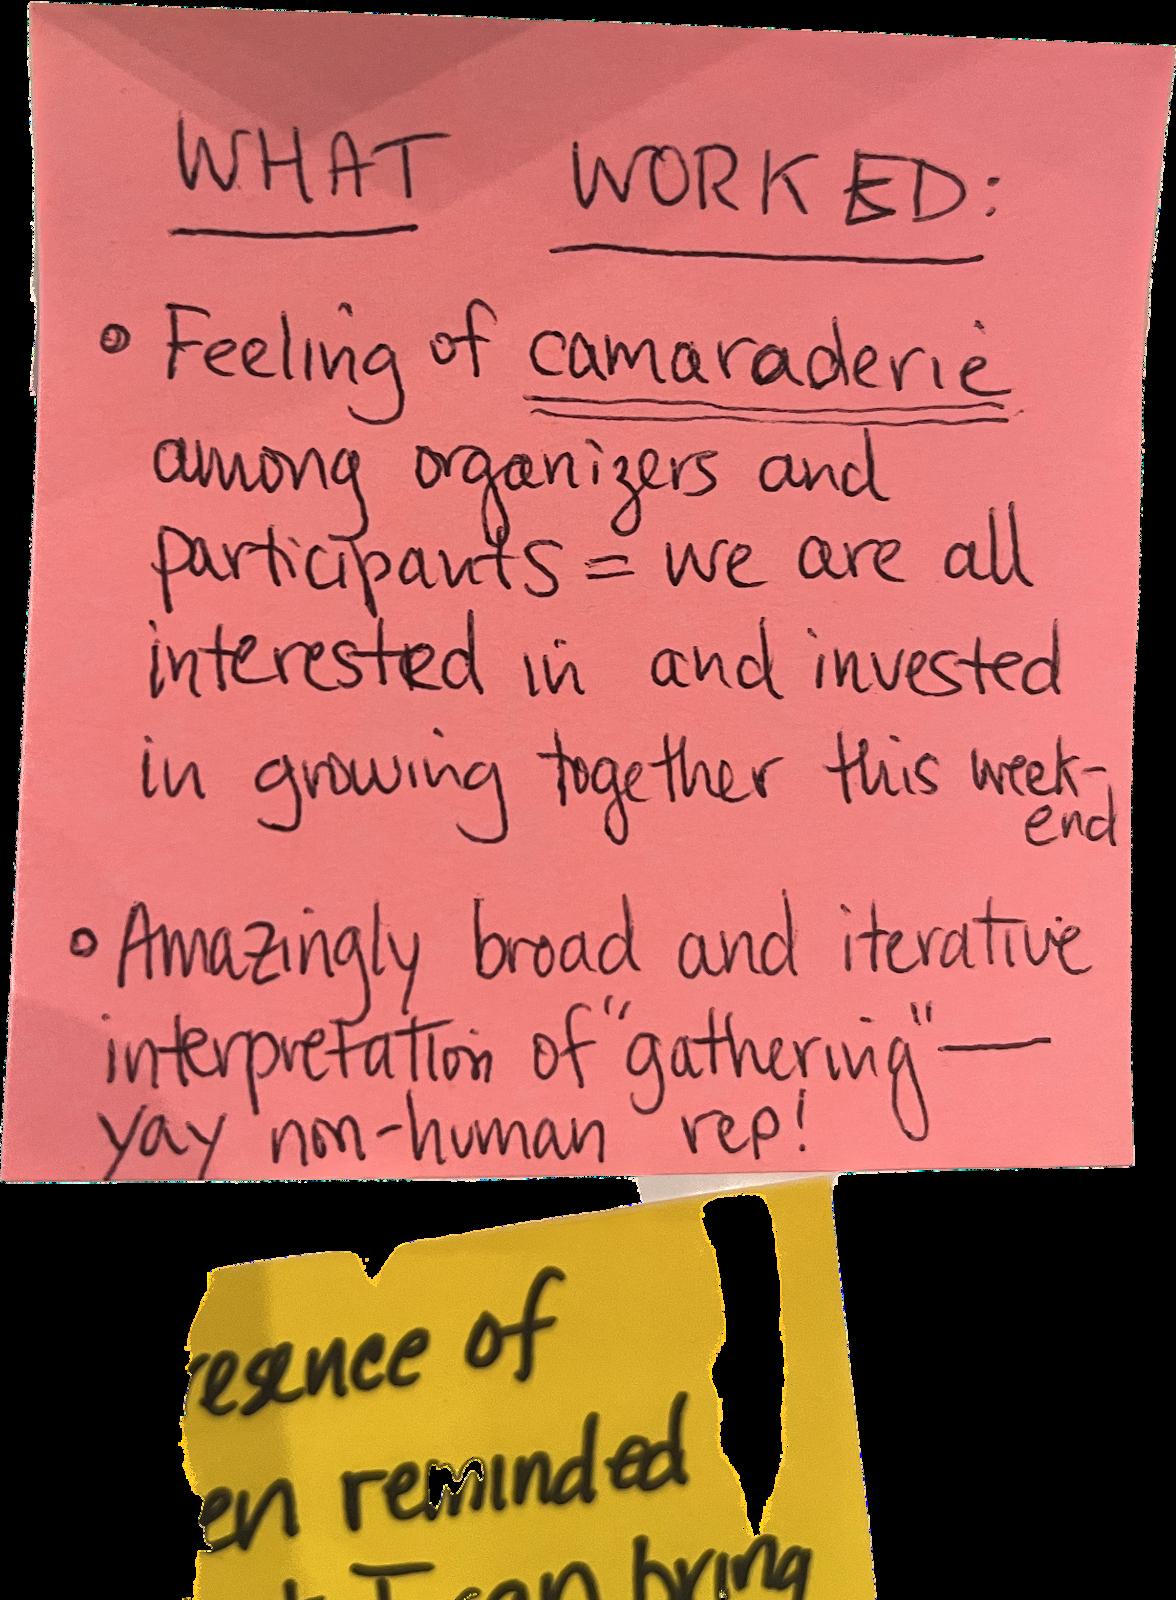 WHAT WORKED:
• Feeling of camaraderie
among organizers and
participants = we are all
interested in and invested
in growing together this week-
end
• Amazingly broad and iterative
interpretation of "gathering" —
yay non-human rep!
esence of
en reminded
I can bring